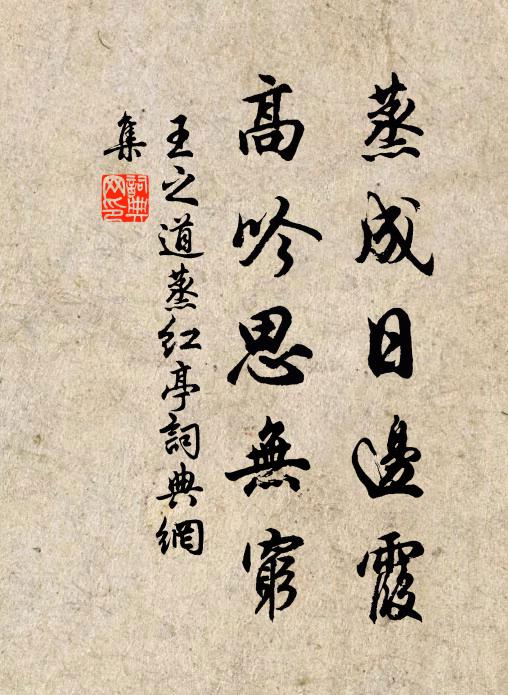 蒸成日邊霞
高吟思無窮
王之道蒸紅亭詞典網
集
詞典網印